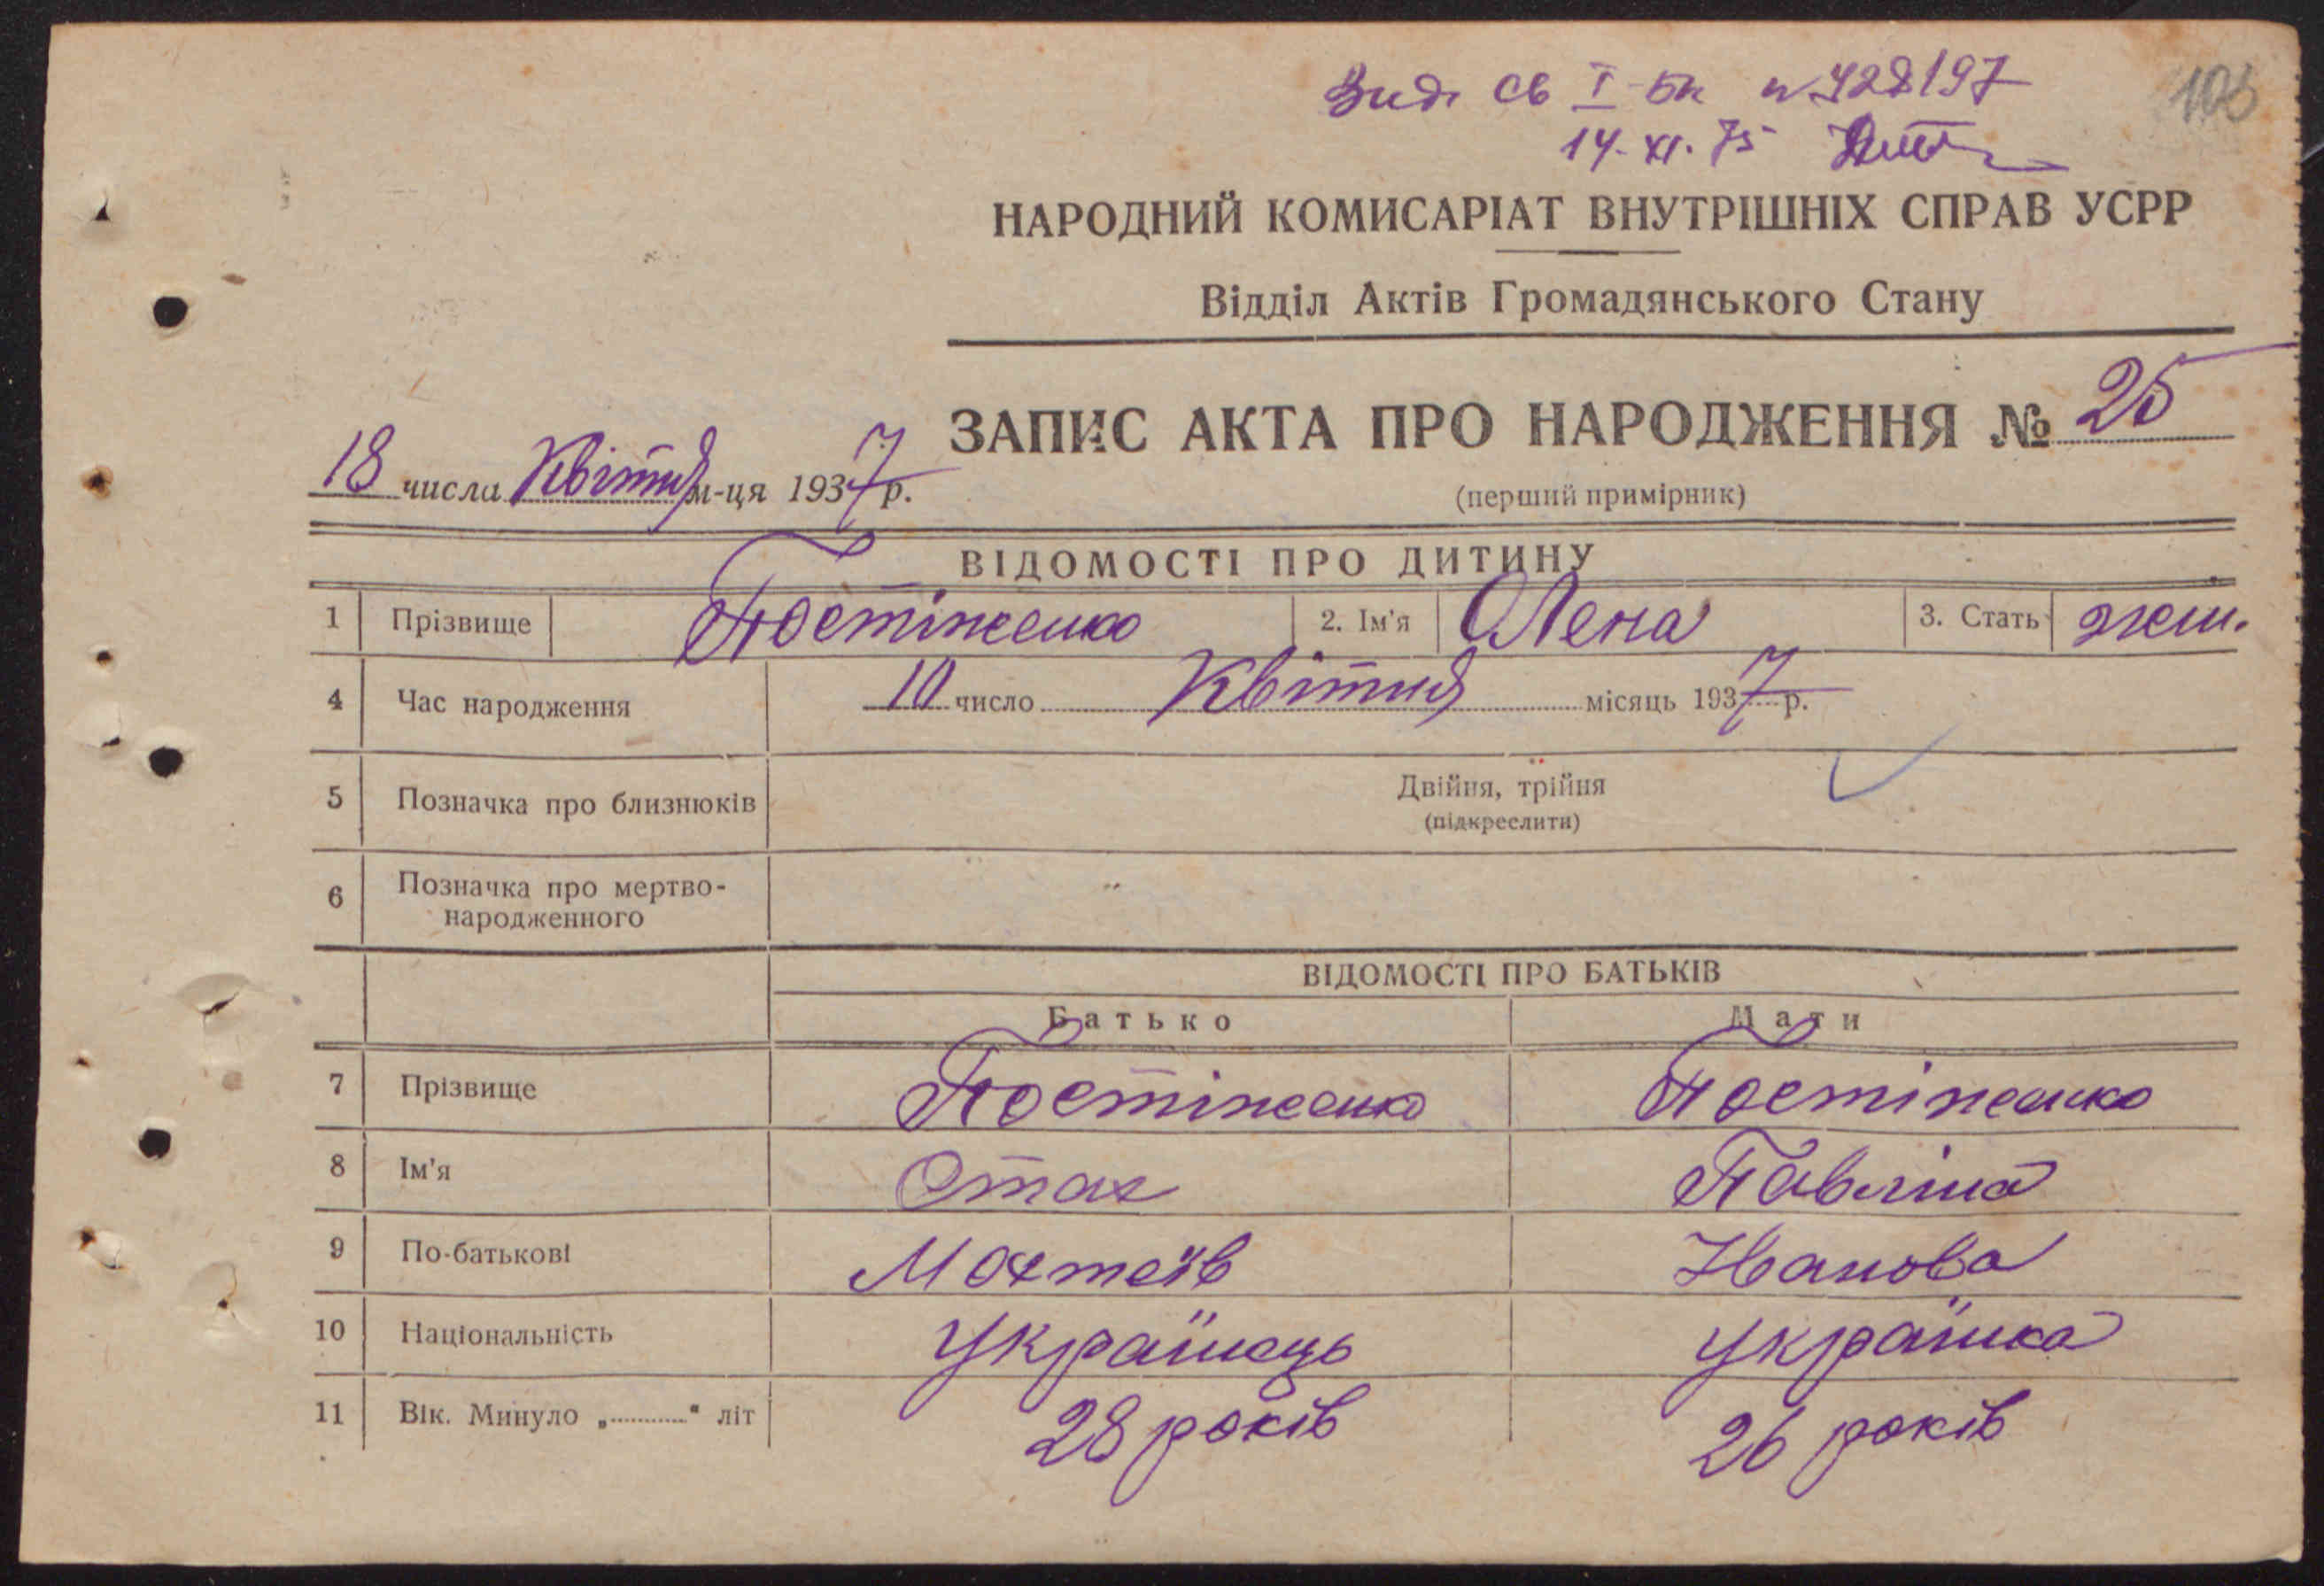 Вид. св I-БК № 428197
103
14. XI. 75
НАРОДНИЙ КОМИСАРІАТ ВНУТРІШНІХ СПРАВ УСРР
Відділ Актів Громадянського Стану
ЗАПИС АКТА ПРО НАРОДЖЕННЯ № 25
18 числа Квітня м-ця 1937 р.
(перший примірник)
ВІДОМОСТІ ПРО ДИТИНУ
1 Прізвище Постіженко 2. Ім'я Олена 3. Стать жін.
4 Час народження 10 число Квітня місяць 1937 р.
5 Позначка про близнюків Двійня, трійня
(підкреслити)
6 Позначка про мертво-
народженного
ВІДОМОСТІ ПРО БАТЬКІВ
Батько Мати
7 Прізвище Постіженко Постіженко
8 Ім'я Отах Павліна
9 По-батькові Мохтеїв Иванова
10 Національність Українець Українка
11 Вік. Минуло „............" літ 28 років 26 років